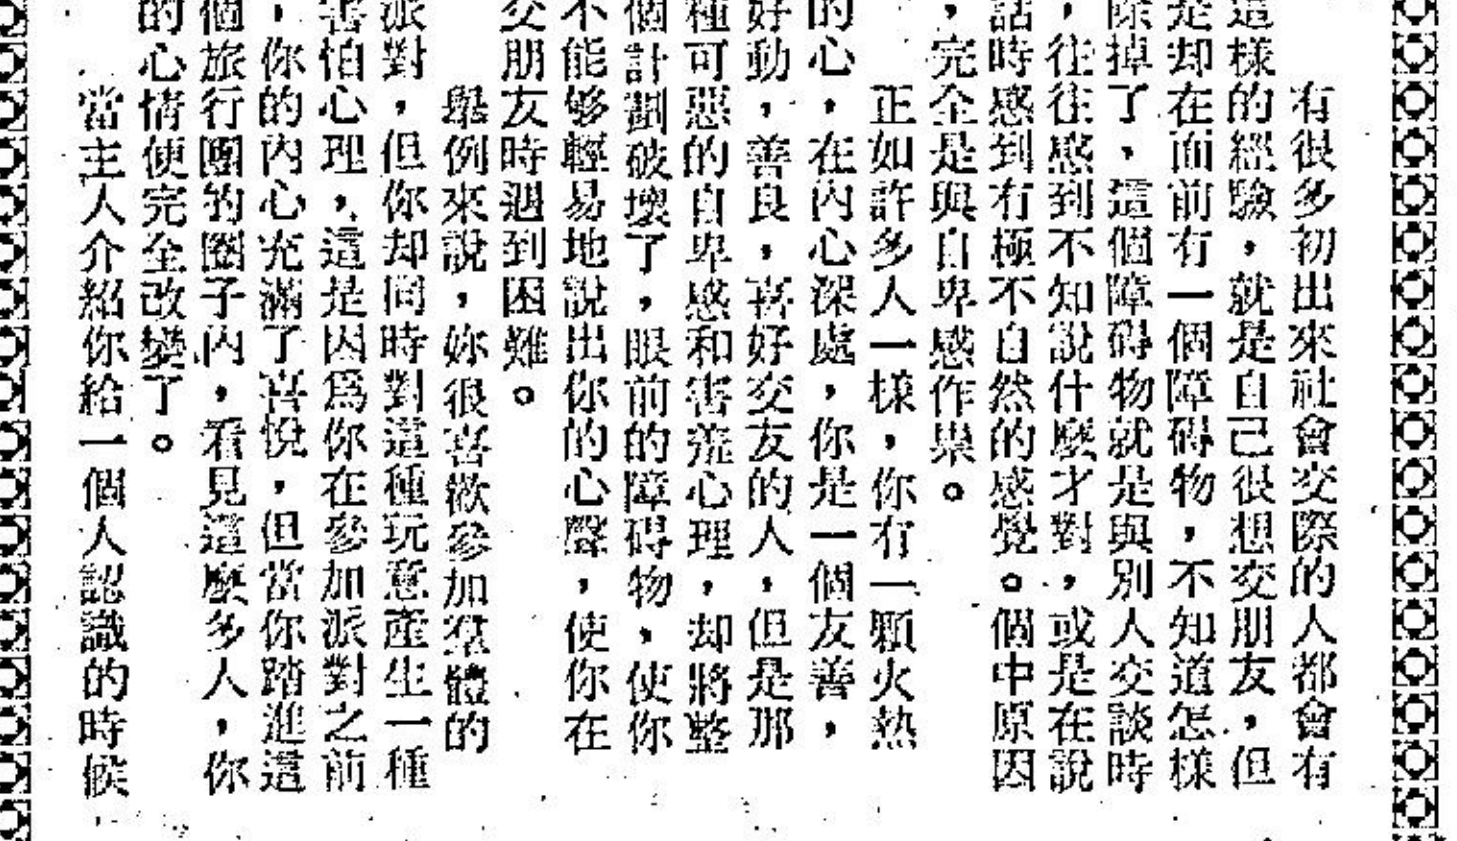 有很多初出來社會交際的人都會有
這樣的經驗，就是自己很想交朋友，但
是却在面前有一個障碍物，不知道怎樣
除掉了，這個障碍物就是與別人交談時
，往往感到不知說什麽才對，或是在說
話時感到有極不自然的感覺。個中原因
，完全是與自卑感作祟。
正如許多人一樣，你有一顆火熱
的心，在內心深處，你是一個友善，
好動，善良，喜好交友的人，但是那
種可惡的自卑感和害羞心理，却將整
個計劃破壞了，眼前的障碍物，使你
不能够輕易地說出你的心聲，使你在
交朋友時遇到困難。
舉例來說，妳很喜歡參加羣體的
派對，但你却同時對這種玩意產生一種
害怕心理，這是因爲你在參加派對之前
，你的內心充滿了喜悅，但當你踏進這
個旅行團的圈子內，看見這麽多人，你
的心情便完全改變了。
當主人介紹你給一個人認識的時候